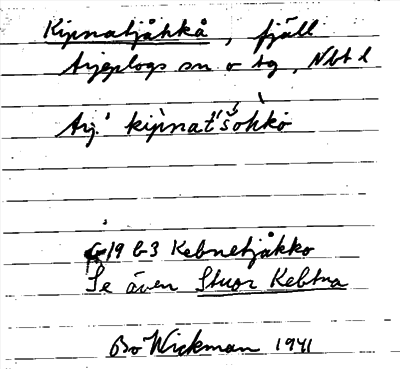 Kipnatjåkkå, fjäll
Arjeplogs sn o tg, Nbt l
Arj. kìpnat'šò̀hkò
G 19 b-3 Kebnetjåkko
Se även Stuor Kebtna
Bo Wickman 1941